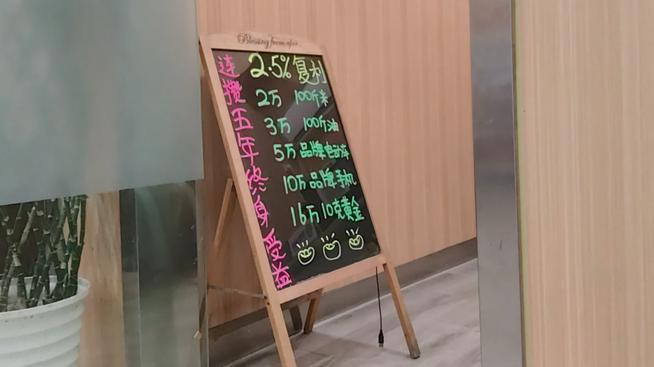 Blessing from after
连攒五年终身受益
2.5%复利
2万 100斤米
3万 100斤油
5万品牌电动车
10万品牌手机
16万10克黄金